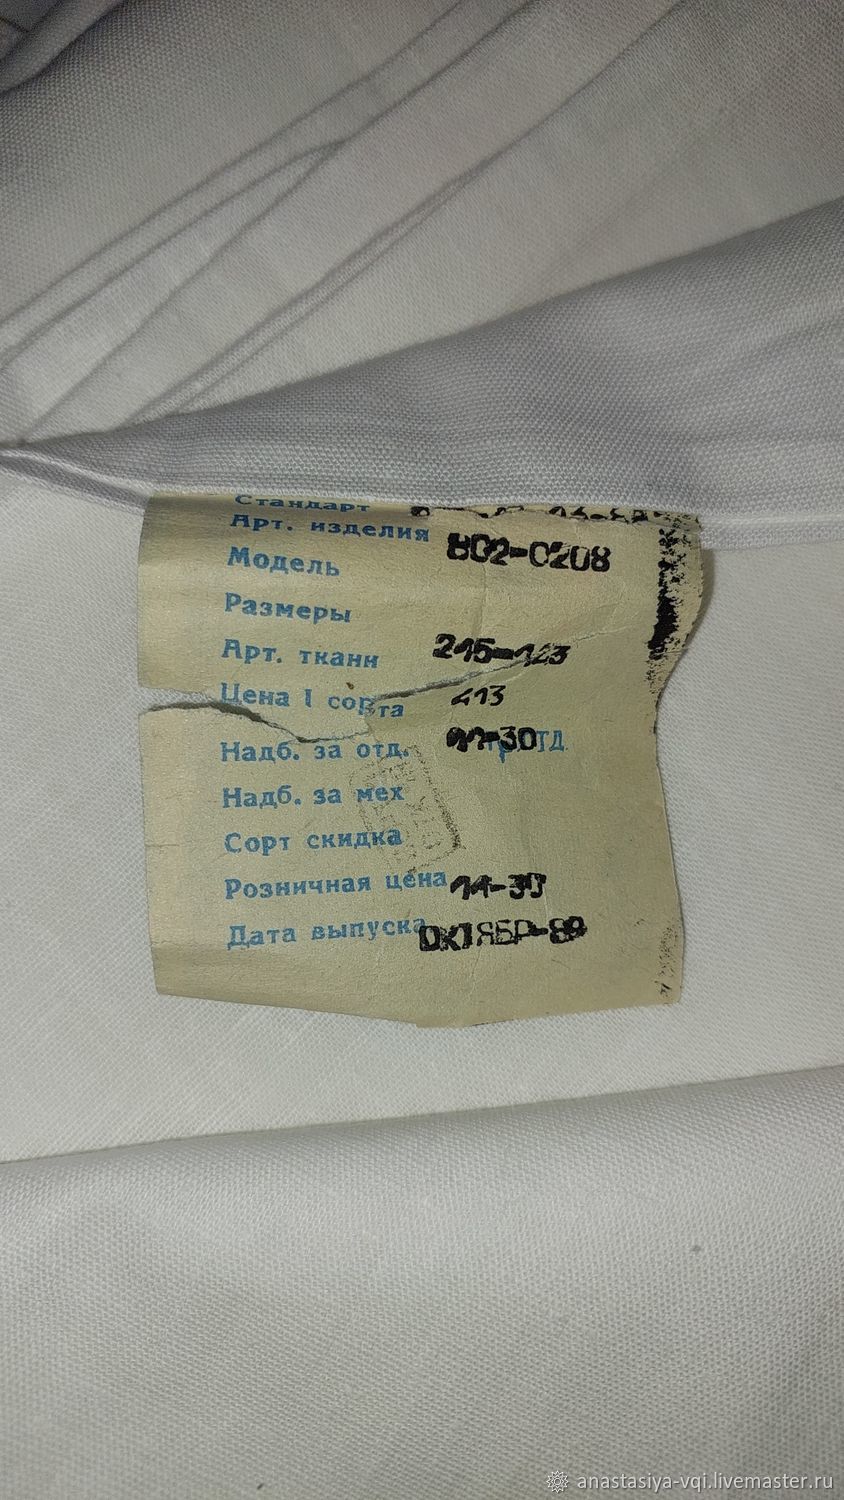 Стандарт
Арт. изделия 802-0208
Модель
Размеры
Арт. ткани 215-123
Цена I сорта 213
Надб. за отд.
Надб. за мех
Сорт скидка
Розничная цена 11-30
Дата выпуска ОКТЯБР-89
anastasiya-vqi.livemaster.ru